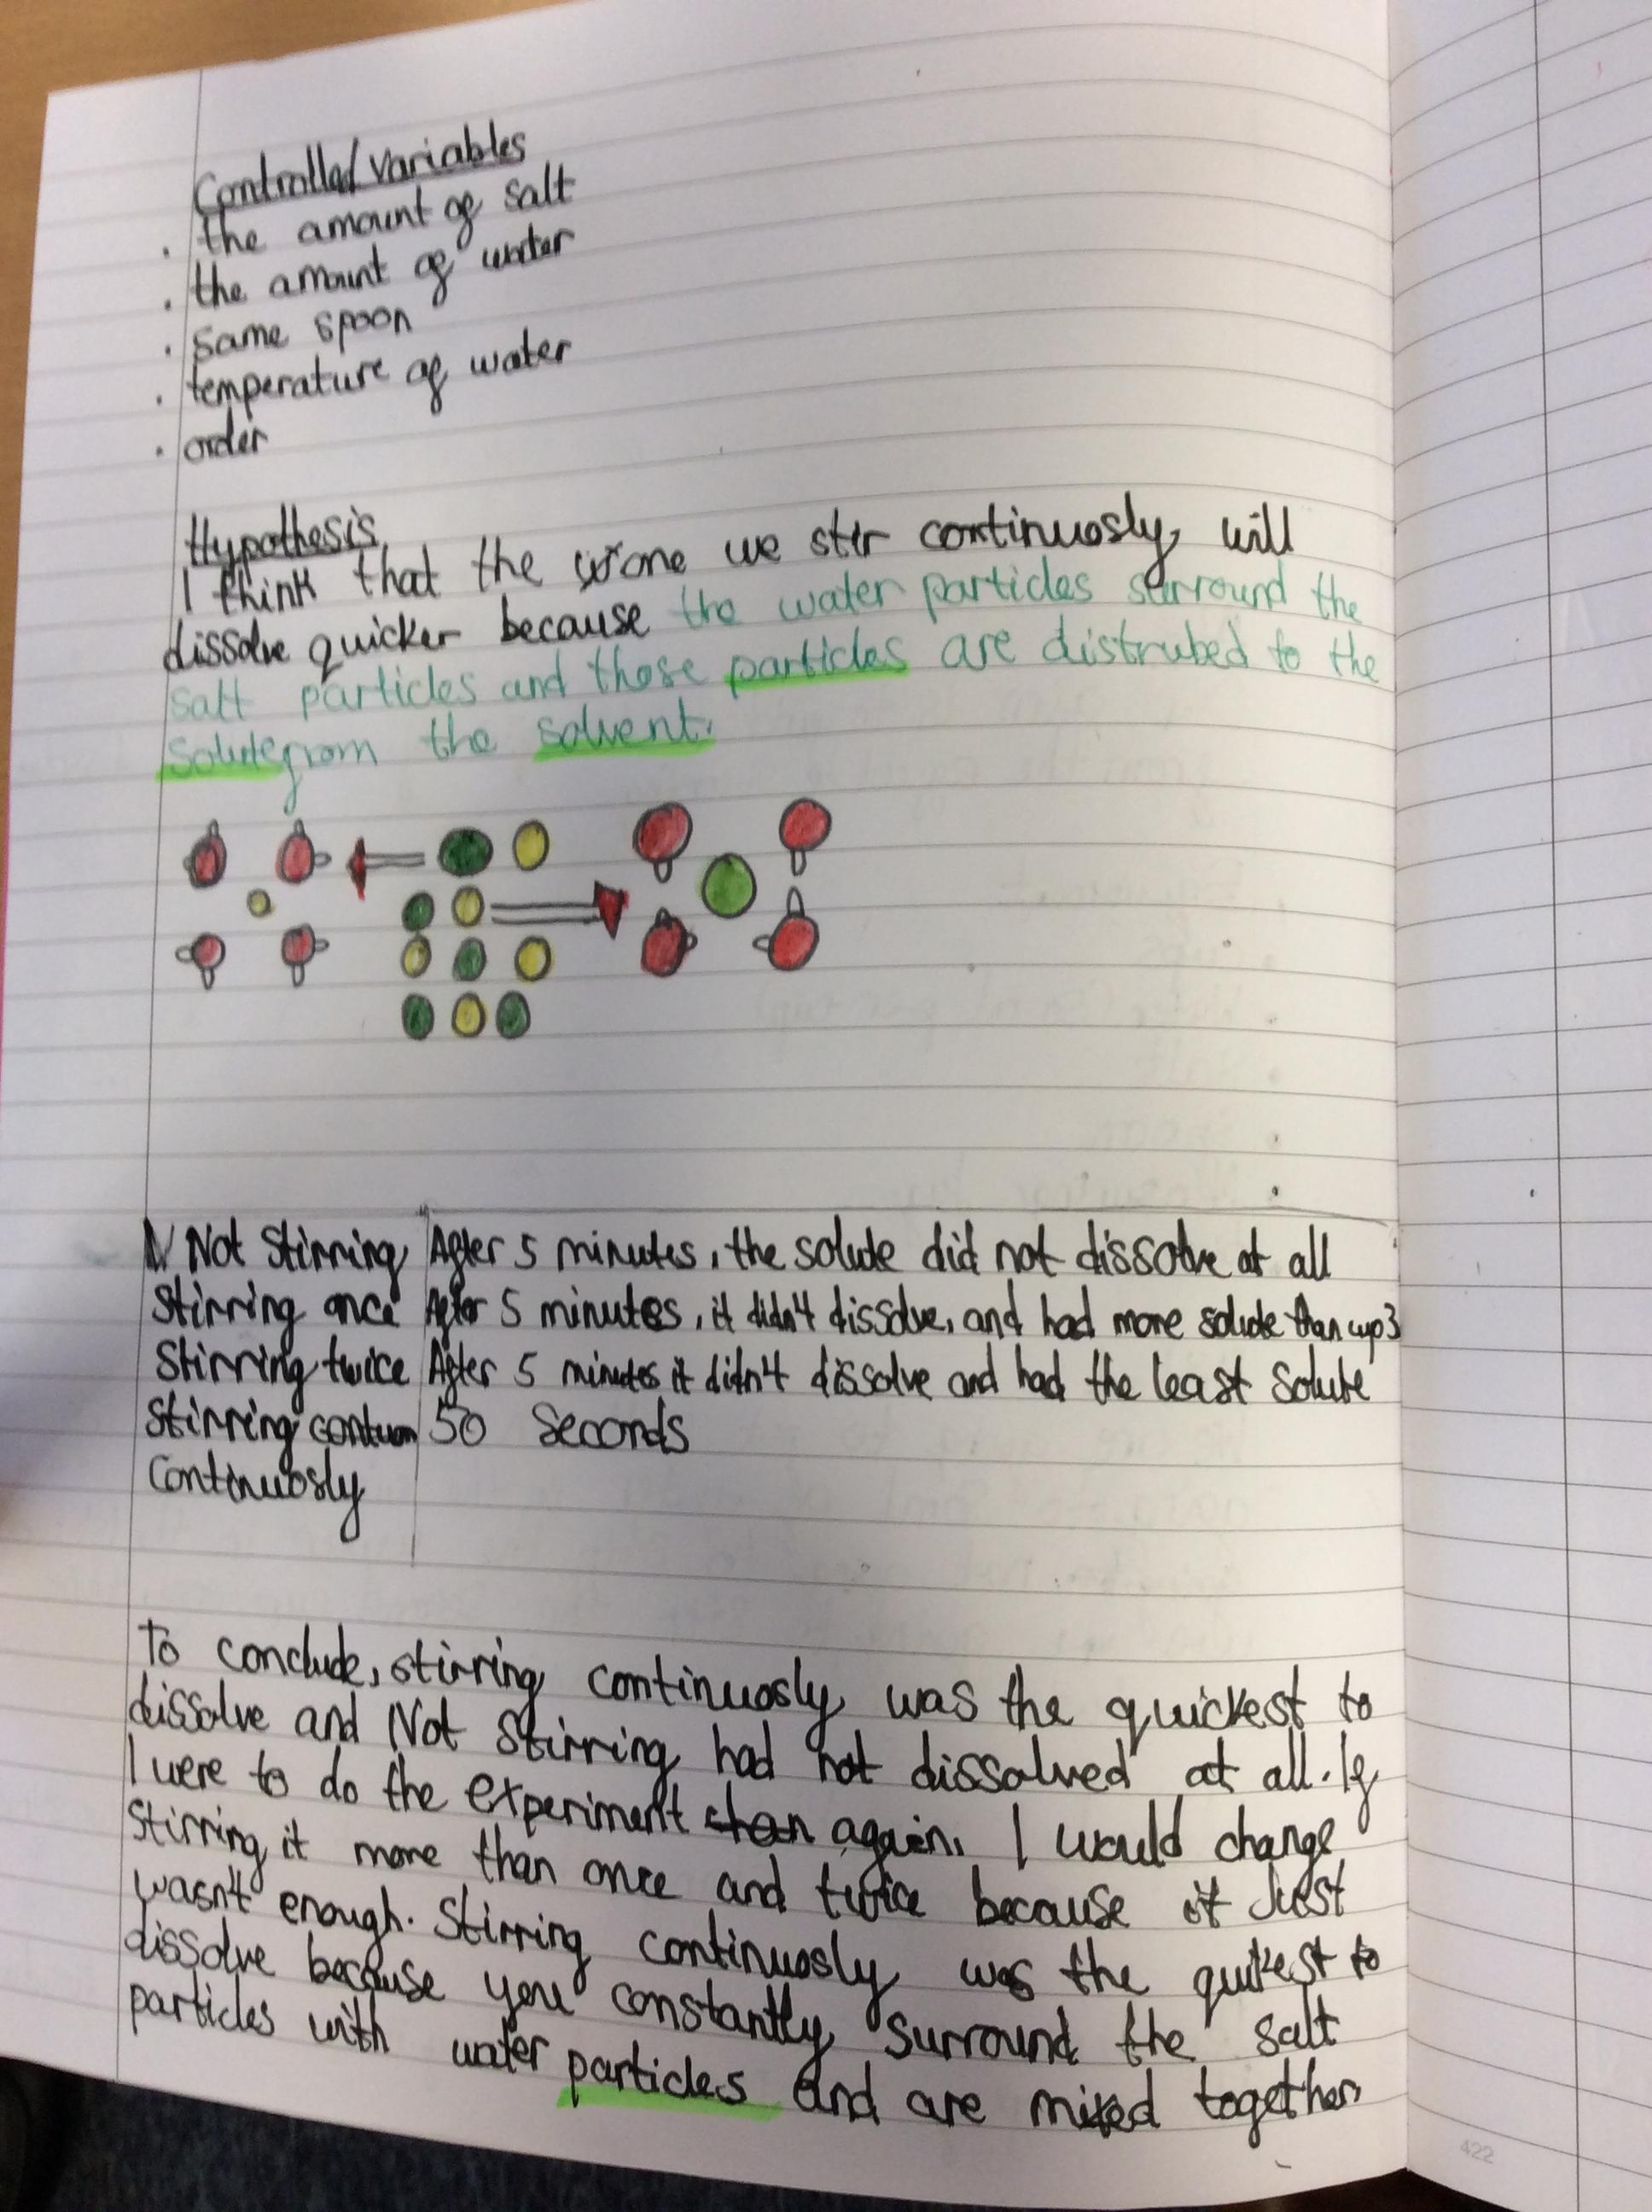 Controlled Variables
. the amount of salt
. the amount of water
. same spoon
. temperature of water
. order
Hypothesis
I think that the one we stir continuosly, will
dissolve quicker because the water particles surround the
salt particles and those particles are distrubed to the
solute from the solvent.
Not Stirring After 5 minutes, the solute did not dissolve at all
Stirring once After 5 minutes, it didn't dissolve, and had more solute than cup 3
Stirring twice After 5 minutes it didn't dissolve and had the least solute
Stirring 50 Seconds
Continuosly
To conclude, stirring continuosly was the quickest to
dissolve and Not Stirring had not dissolved at all. If
I were to do the experiment again, I would change
stirring it more than once and twice because it Just
wasn't enough. Stirring continuosly was the quikest to
dissolve because you constantly surround the salt
particles with water particles and are mixed together.
422